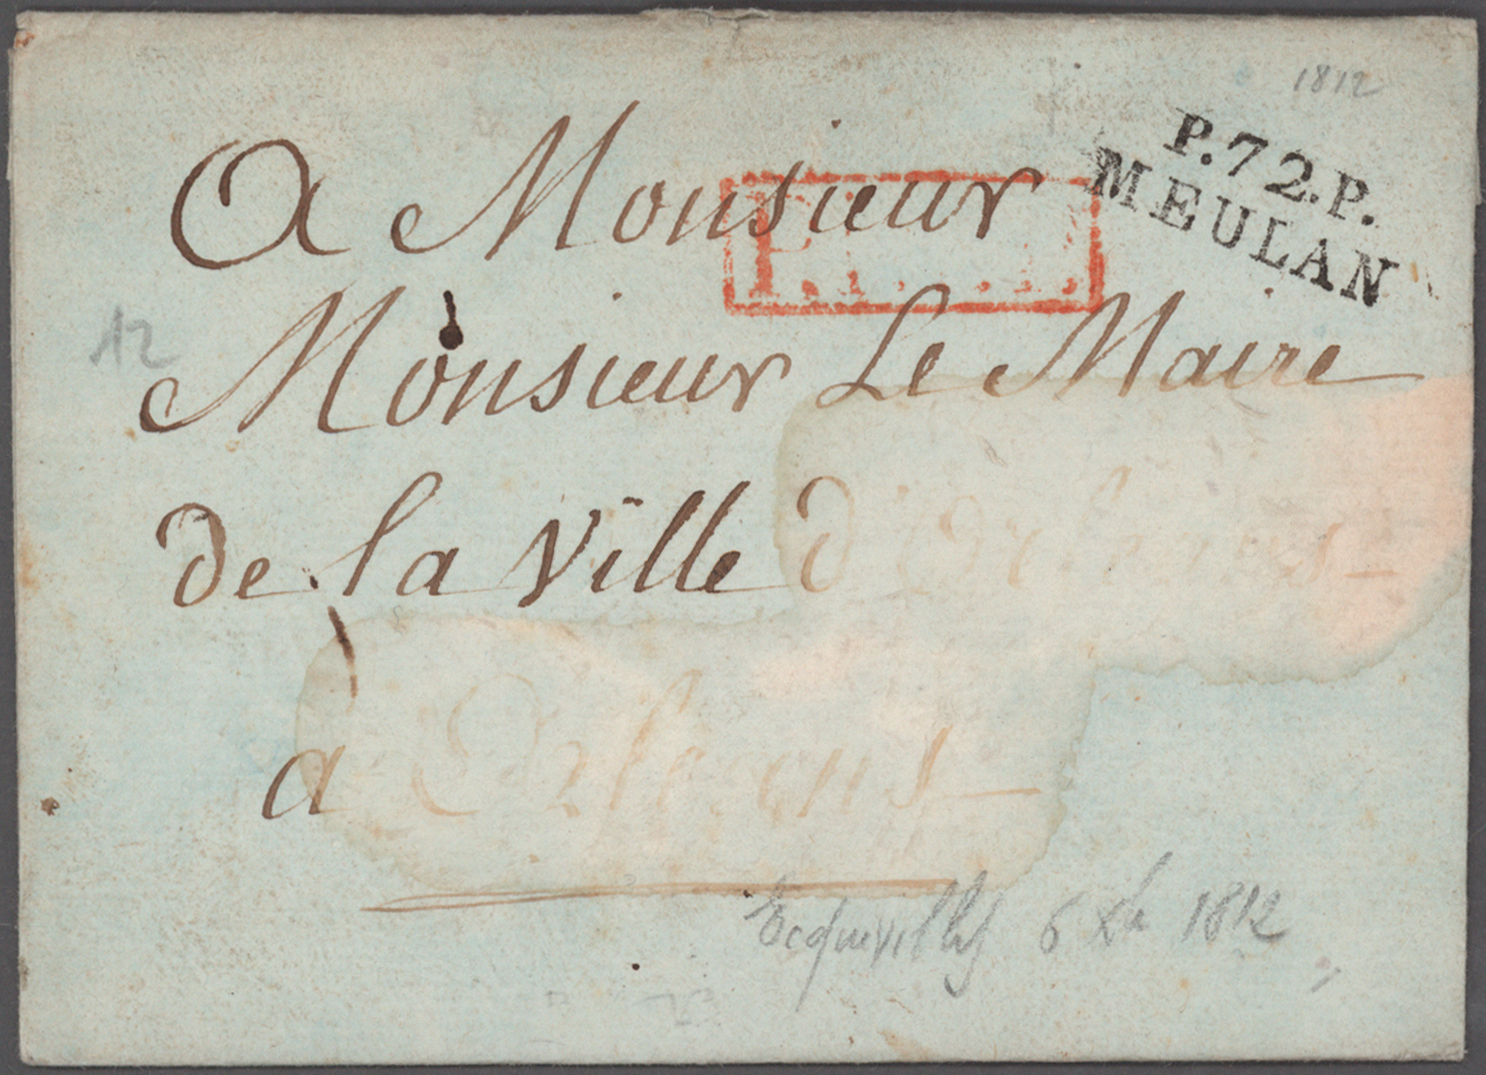 1812
P.72.P.
MEULAN
A Monsieur
12
Monsieur Le Maire
de la Ville d'Orleans
à Orleans
Ecquevilly 6 Xbre 1812